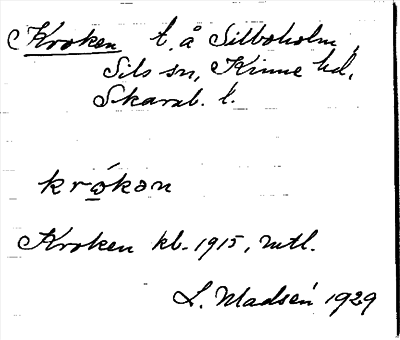 Kroken t. å Silboholm,
Sils sn, Kinne hd,
Skarab. l.
krọ́kən
Kroken kb. 1915, mtl.
L. Madsén 1929